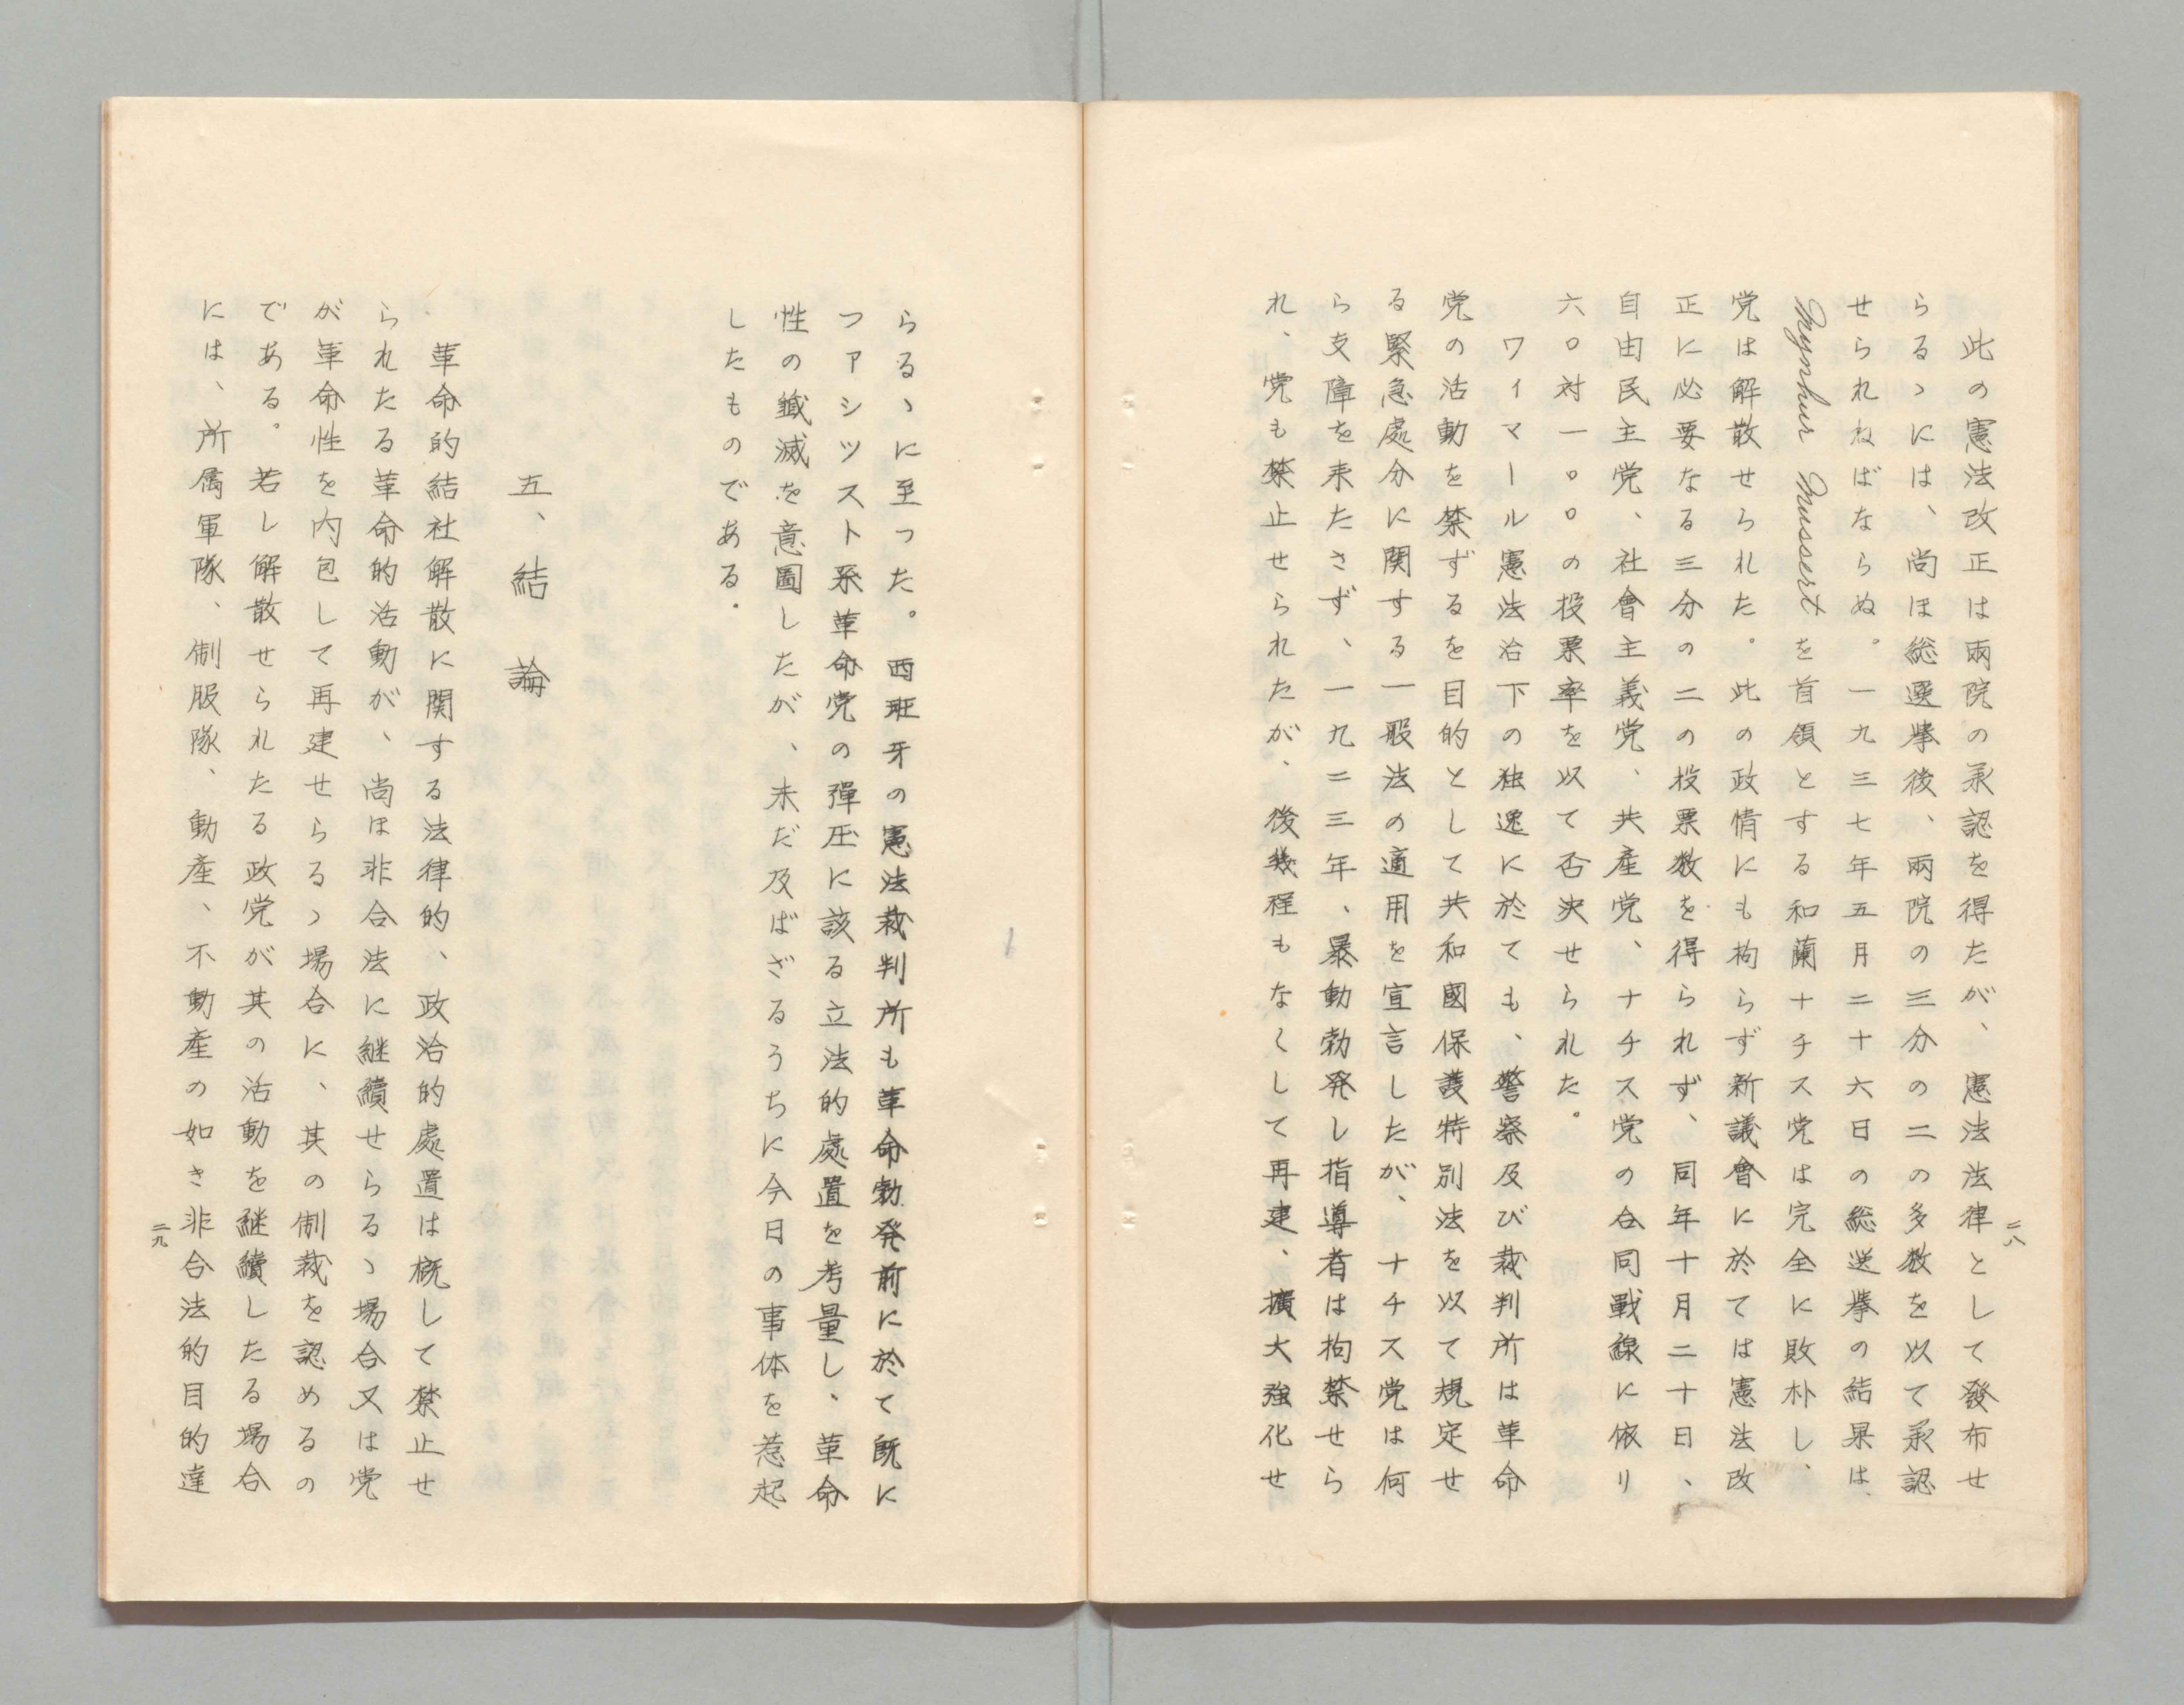 此の憲法改正は兩院の承認を得たが、憲法法律として發布せ
らるゝには、尚ほ総選挙後、兩院の三分の二の多数を以て承認
せられねばならぬ。一九三七年五月二十六日の総選挙の結果は、
Mynhur Mussertを首領とする和蘭ナチス党は完全に敗朴し、
党は解散せられた。此の政情にも拘らず新議會に於ては憲法改
正に必要なる三分の二の投票数を得られず、同年十月二十日、
自由民主党、社會主義党、共産党、ナチス党の合同戰線に依リ
六〇対一〇〇の投票率を以て否決せられた。
ワィマール憲法治下の独逸に於ても、警察及び裁判所は革命
党の活動を禁ずるを目的として共和國保護特別法を以て規定せ
る緊急處分に関する一般法の適用を宣言したが、ナチス党は何
ら支障を来たさず、一九二三年、暴動勃発し指導者は拘禁せら
れ、党も禁止せられたが、後幾程もなくして再建、擴大強化せ
二八
らるゝに至った。西班牙の憲法裁判所も革命勃発前に於て既に
ファシツスト系革命党の彈圧に該る立法的處置を考量し、革命
性の鑯滅を意圖したが、未だ及ばざるうちに今日の事体を惹起
したものである.
五、結論
革命的結社解散に関する法律的、政治的處置は概して禁止せ
られたる革命的活動が、尚ほ非合法に継續せらるゝ場合又は党
が革命性を内包して再建せらるゝ場合に、其の制裁を認めるの
である。若し解散せられたる政党が其の活動を継續したる場合
には、所属軍隊、制服隊、動産、不動産の如き非合法的目的達
二九